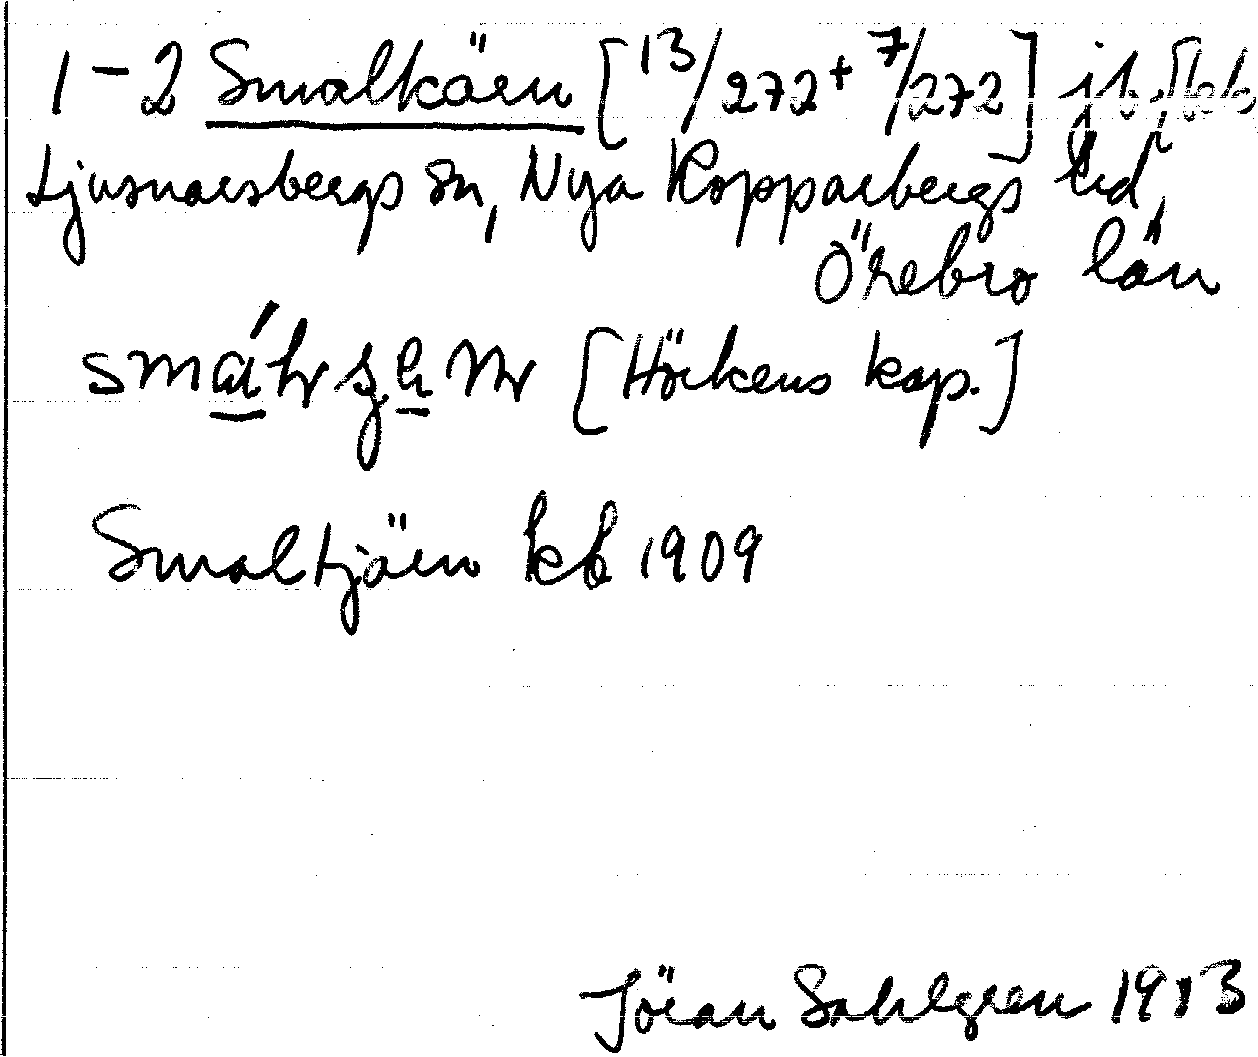 1-2 Smalkärn [13/272 + 7/272] jb,
Ljusnarsbergs sn, Nya Kopparbergs hd,
Örebro län
[Hörkens kap.]
Smaltjärn kb 1909
Jöran Sahlgren 1913